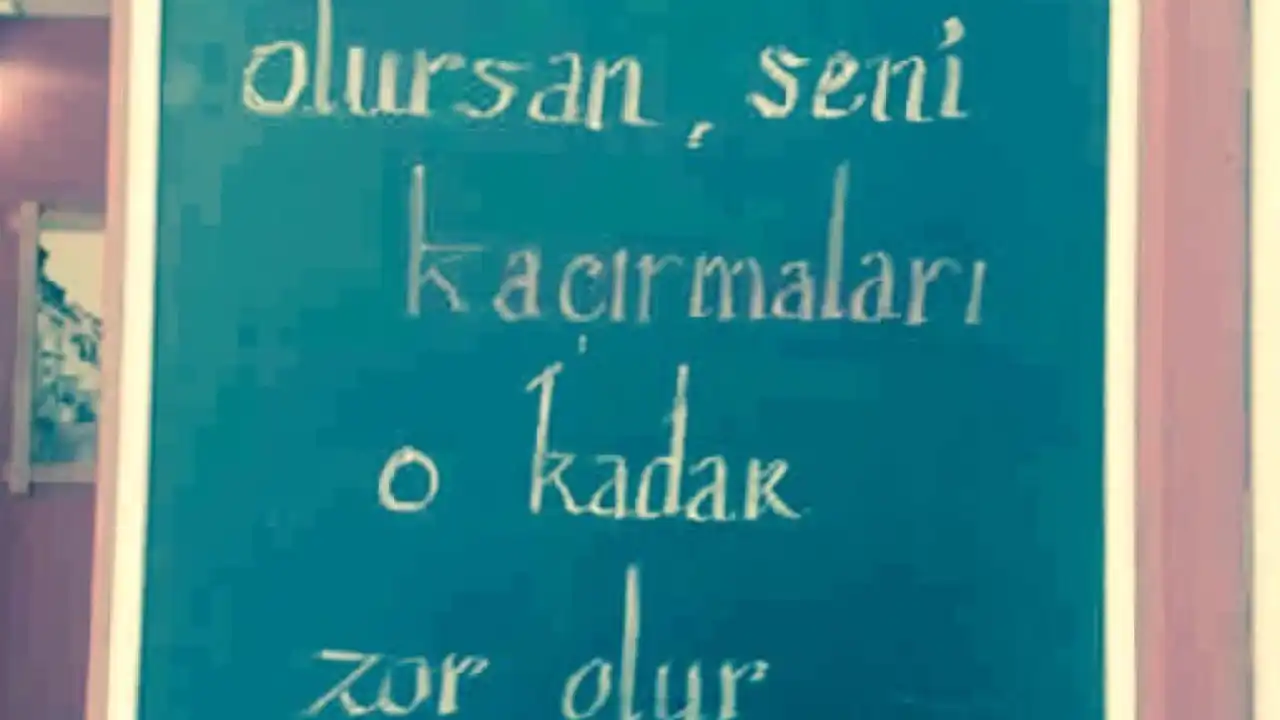 olursan, seni
kaçırmaları
o kadar
zor olur